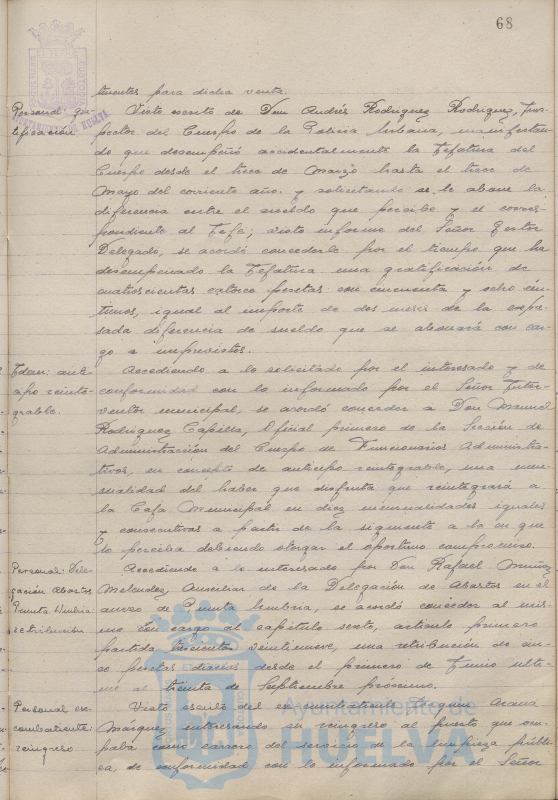 68
tinentes para dicha venta.
Personal: gra-
tificación
Visto escrito de Don Andrés Rodriguez Rodriguez, Ins-
pector del Cuerpo de la Policia Urbana, manifestan-
do que desempeñó accidentalmente la Jefatura del
Cuerpo desde el trece de Marzo hasta el trece de
Mayo del corriente año y solicitando se le abone la
diferencia entre el sueldo que percibe y el corres-
pondiente al Jefe; visto informe del Señor Gestor
Delegado, se acordó concederle por el tiempo que ha
desempeñado la Jefatura una gratificación de
cuatrocientas catorce pesetas con cincuenta y ocho cén-
timos, igual al importe de dos meses de la expre-
sada diferencia de sueldo que se abonará con car-
go a imprevistos.
Idem: anti-
cipo reinte-
grable.
Accediendo a lo solicitado por el interesado y de
conformidad con lo informado por el Señor Inter-
ventor municipal, se acordó conceder a Don Manuel
Rodriguez Capilla, Oficial primero de la Sección de
Administración del Cuerpo de Funcionarios Administra-
tivos, en concepto de anticipo reintegrable, una men-
sualidad del haber que disfruta que reintegrará a
la Caja Municipal en diez mensualidades iguales
y consecutivas a partir de la siguiente a la en que
lo perciba debiendo otorgar el oportuno compromiso.
Personal: Dele-
gación Abastos
Punta Umbria
retribución
Accediendo a lo interesado por Don Rafael Muñoz
Melendez, Auxiliar de la Delegación de Abastos en el
anexo de Punta Umbria, se acordó conceder al mis-
mo con cargo al capitulo sexto, articulo primero
partida trescientos veintinueve, una retribución de cin-
co pesetas diarias desde el primero de Junio ulti-
mo al treinta de Septiembre próximo.
Personal ex-
combatiente:
reingreso
Visto escrito del ex-combatiente Joaquin Arana
Márquez interesando su reingreso al puesto que ocu-
paba como carrero del servicio de la limpieza públi-
ca, de conformidad con lo informado por el Señor
Ayuntamiento de
HUELVA